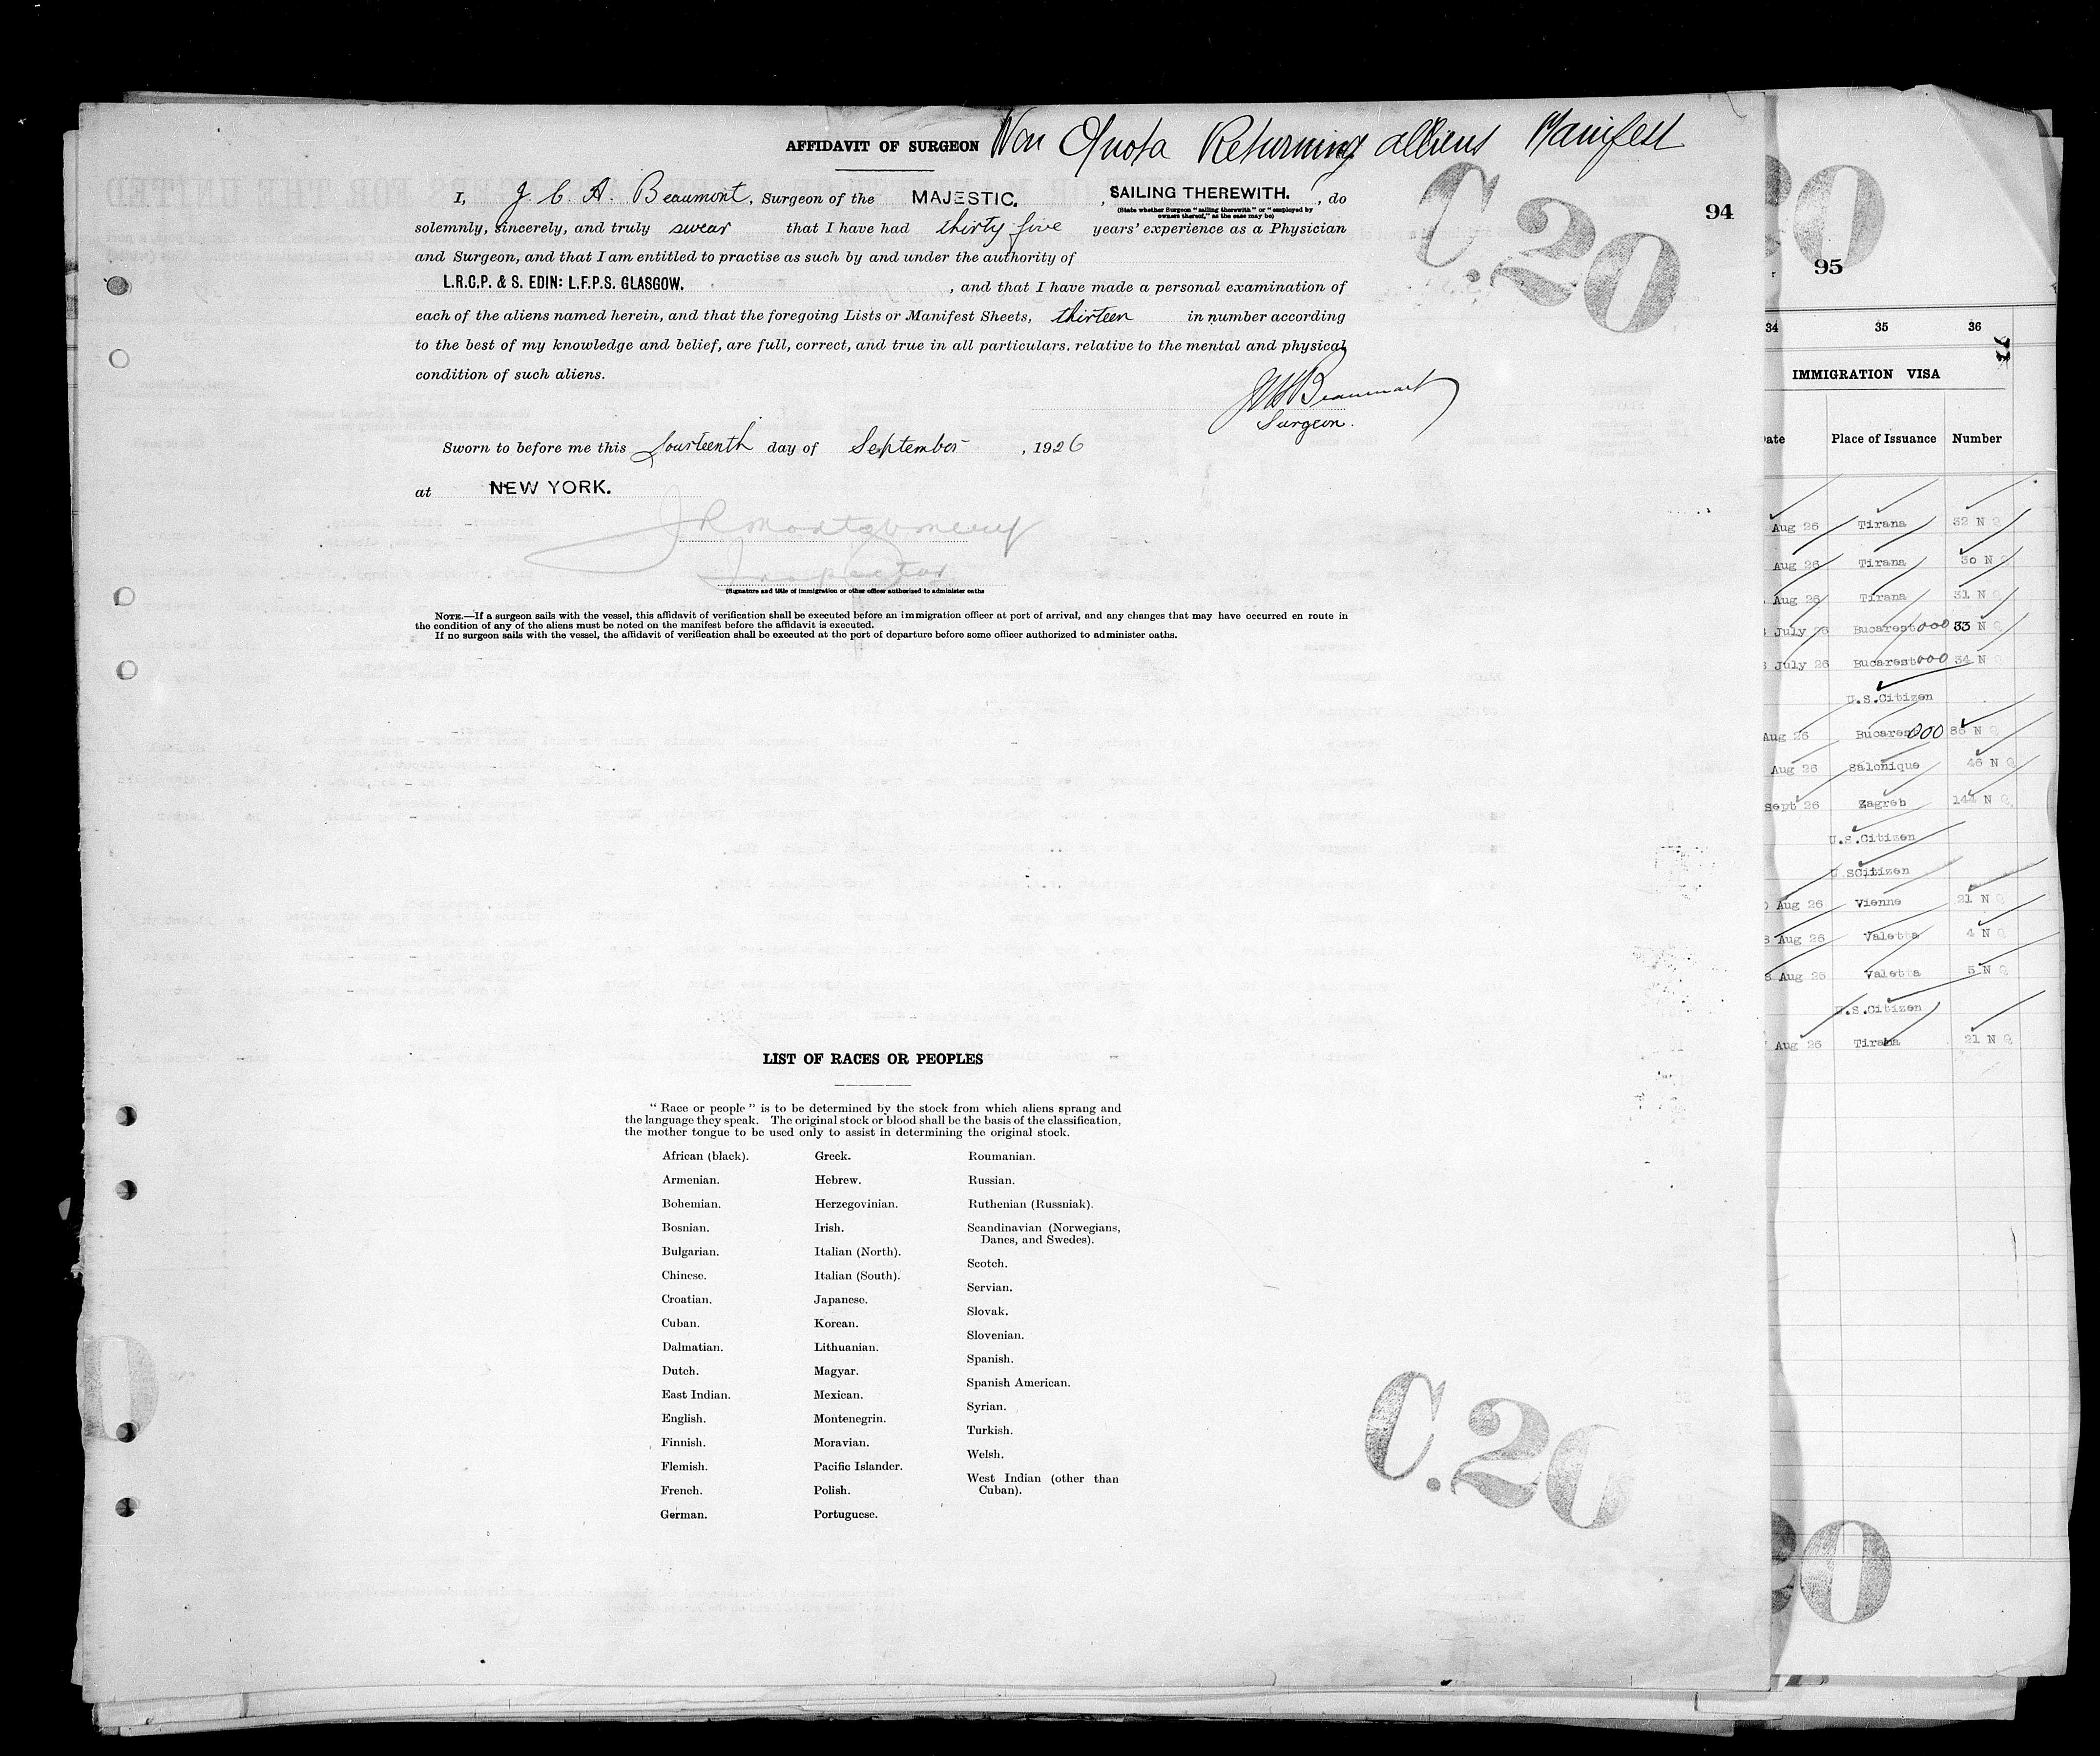 AFFIDAVIT OF SURGEON Non Quota Returning alliens Manifest
C.20
94
I, J. C. H. Beaumont, Surgeon of the MAJESTIC. , SAILING THEREWITH. , do
(State whether Surgeon "sailing therewith" or "employed by
owners thereof," as the case may be)
solemnly, sincerely, and truly swear that I have had thirty five years' experience as a Physician
and Surgeon, and that I am entitled to practise as such by and under the authority of
L.R.C.P. & S. EDIN: L.F.P.S. GLASGOW. , and that I have made a personal examination of
each of the aliens named herein, and that the foregoing Lists or Manifest Sheets, thirteen in number according
to the best of my knowledge and belief, are full, correct, and true in all particulars, relative to the mental and physical
condition of such aliens.
JCHBeaumont
Surgeon.
Sworn to before me this fourteenth day of September , 1926
at NEW YORK.
J R Montgomery
Inspector
(Signature and title of immigration or other officer authorized to administer oaths
NOTE.—If a surgeon sails with the vessel, this affidavit of verification shall be executed before an immigration officer at port of arrival, and any changes that may have occurred en route in
the condition of any of the aliens must be noted on the manifest before the affidavit is executed.
If no surgeon sails with the vessel, the affidavit of verification shall be executed at the port of departure before some officer authorized to administer oaths.
LIST OF RACES OR PEOPLES
"Race or people" is to be determined by the stock from which aliens sprang and
the language they speak. The original stock or blood shall be the basis of the classification,
the mother tongue to be used only to assist in determining the original stock.
African (black).
Armenian.
Bohemian.
Bosnian.
Bulgarian.
Chinese.
Croatian.
Cuban.
Dalmatian.
Dutch.
East Indian.
English.
Finnish.
Flemish.
French.
German.
Greek.
Hebrew.
Herzegovinian.
Irish.
Italian (North).
Italian (South).
Japanese.
Korean.
Lithuanian.
Magyar.
Mexican.
Montenegrin.
Moravian.
Pacific Islander.
Polish.
Portuguese.
Roumanian.
Russian.
Ruthenian (Russniak).
Scandinavian (Norwegians,
Danes, and Swedes).
Scotch.
Servian.
Slovak.
Slovenian.
Spanish.
Spanish American.
Syrian.
Turkish.
Welsh.
West Indian (other than
Cuban).
C.20
20
95
34 35 36
IMMIGRATION VISA
Place of Issuance Number
Aug 26 Tirana 32 N Q
Aug 26 Tirana 30 N Q
Aug 26 Tirana 31 N Q
July 26 Bucarest 000 33 N Q
July 26 Bucarest 000 34 N Q
U.S.Citizen
Aug 26 Bucarest 000 86 N Q
Aug 26 Salonique 46 N Q
Sept 26 Zagreb 144 N Q
U.S.Citizen
U.SCitizen
Aug 26 Vienne 21 N Q
Aug 26 Valetta 4 N Q
Aug 26 Valetta 5 N Q
U.S.Citizen
Aug 26 Tirana 21 N Q
20